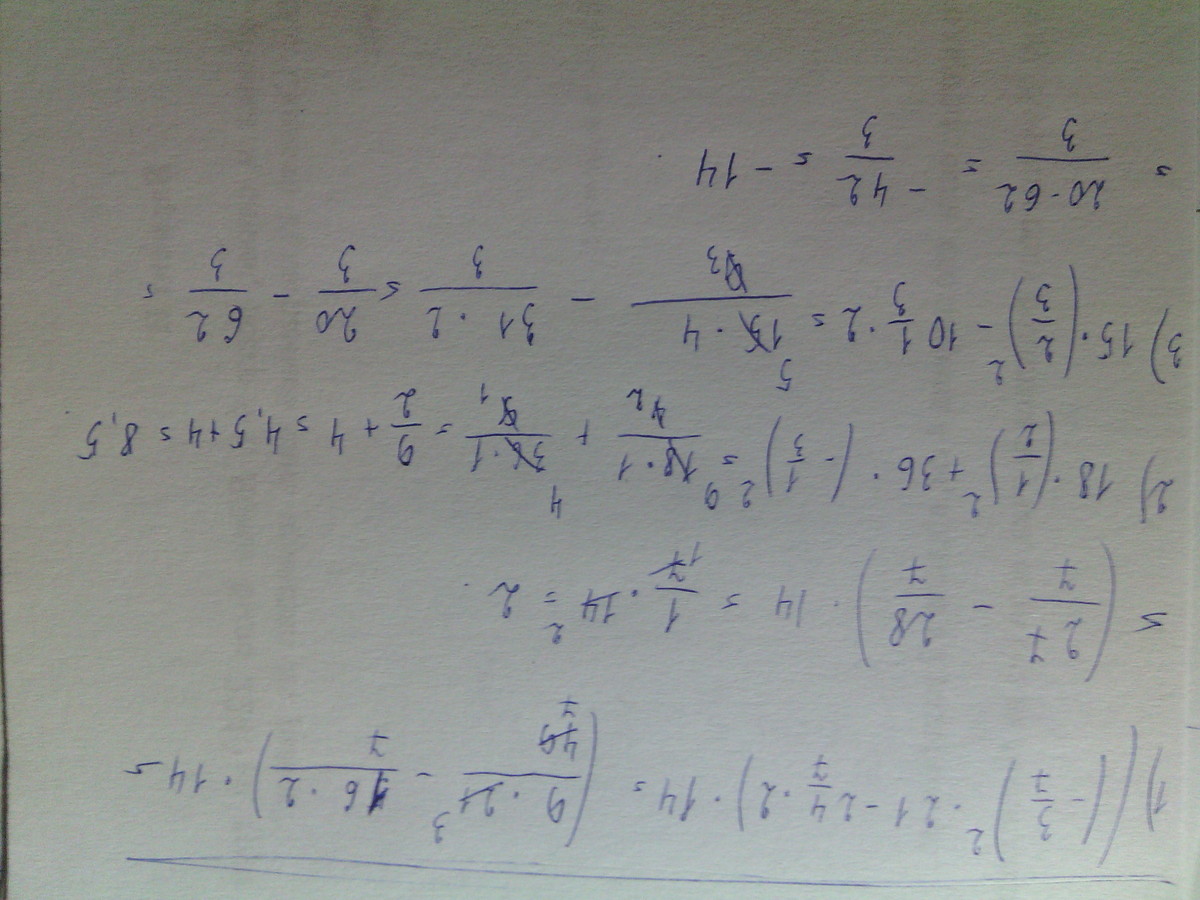 1) ((-3/7)² · 21 - 2 4/7 · 2) · 14 = (9 · 21/49 - 16 · 2/7) · 14 =
3
7
= (27/7 - 28/7) · 14 = 1/7 · 14 = 2
2
1
2) 18 · (1/2)² + 36 · (-1/3)² = 18 · 1/4 + 36 · 1/9 = 9/2 + 4 = 4,5 + 4 = 8,5
9 4
2 1
3) 15 · (2/3)² - 10 1/3 · 2 = 15 · 4/9 - 31 · 2/3 = 20/3 - 62/3 =
5
3
= 20-62/3 = -42/3 = -14